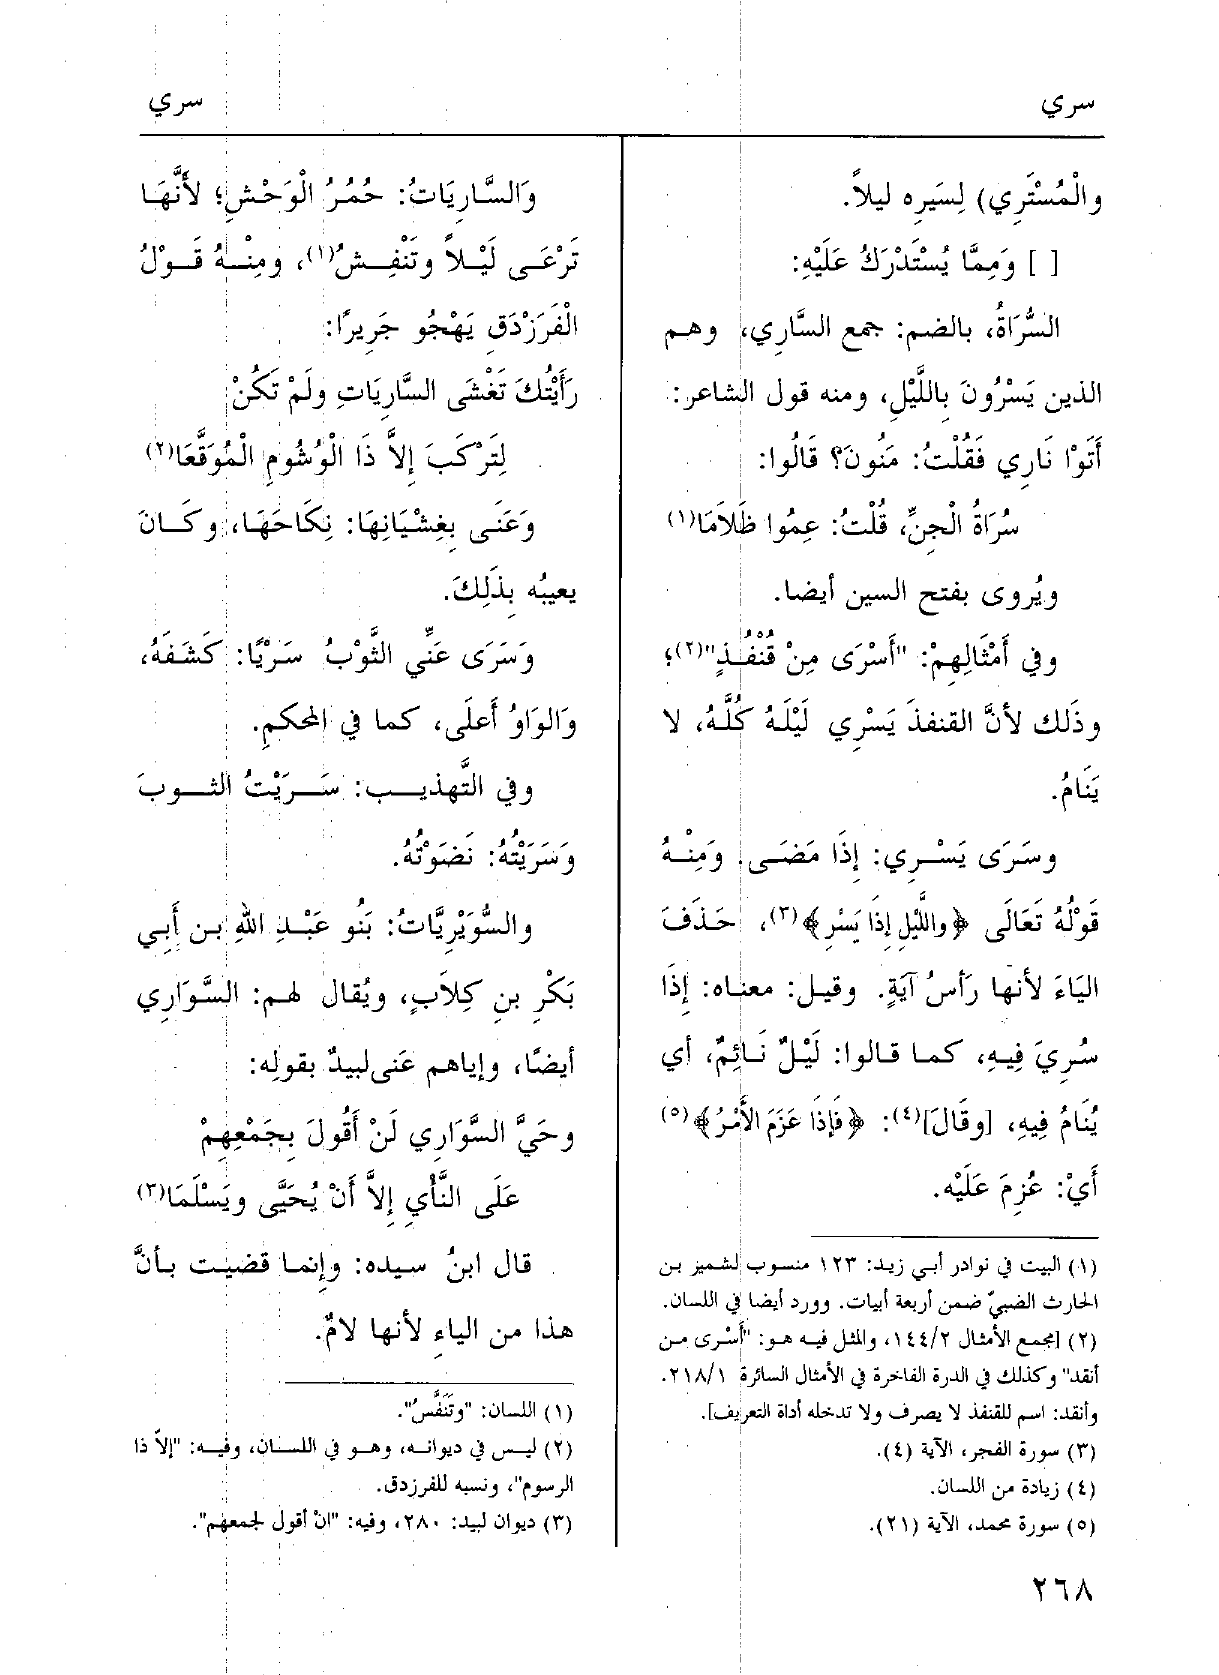 سري
سري
والْمُسْتَرِي) لِسَيَرِه ليلاً.
[ ] وَمِمَّا يُسْتَدْرَكُ عَلَيْهِ:
السُّرَاةُ، بالضم: جمع السَّاري، وهم
الذين يَسْرُونَ بِاللَّيْلِ، ومنه قول الشاعر:
أَتَوْا نَارِي فَقُلْتُ: مَنُونَ؟ قَالُوا:
سُرَاةُ الْجِنِّ، قُلْتُ: عِمُوا ظَلَامَا(١)
ويُروى بفتح السين أيضا.
وفي أَمْثَالِهِمْ: "أَسْرَى مِنْ قُنْفُذٍ"(٢)؛
وذَلك لأنَّ القنفذَ يَسْرِي لَيْلَهُ كُلَّهُ، لا
يَنَامُ.
وسَرَى يَسْرِي: إِذَا مَضَى. وَمِنْهُ
قَوْلُهُ تَعَالَى ﴿واللَّيْلِ إِذَا يَسْرِ﴾(٣)، حَذَفَ
اليَاءَ لأنها رَأْسُ آيَةٍ. وقيل: معناه: إِذَا
سُرِيَ فِيهِ، كما قالوا: لَيْلٌ نَائِمٌ، أي
يُنَامُ فِيهِ، [وقَالَ](٤): ﴿فَإِذَا عَزَمَ الأَمْرُ﴾(٥)
أَيْ: عُزِمَ عَلَيْه.
(١) البيت في نوادر أبي زيد: ١٢٣ منسوب لشمير بن
الحارث الضبيّ ضمن أربعة أبيات. وورد أيضا في اللسان.
(٢) [مجمع الأمثال ١٤٤/٢، والمثل فيه هو: "أَسْرى من
أنقد" وكذلك في الدرة الفاخرة في الأمثال السائرة ٢١٨/١.
وأنقد: اسم للقنفذ لا يصرف ولا تدخله أداة التعريف].
(٣) سورة الفجر، الآية (٤).
(٤) زيادة من اللسان.
(٥) سورة محمد، الآية (٢١).
وَالسَّارِيَاتُ: حُمُرُ الْوَحْشِ؛ لأَنَّهَا
تَرْعَى لَيْلاً وتَنْفِشُ(١)، ومِنْهُ قَوْلُ
الْفَرَزْدَقِ يَهْجُو جَرِيرًا:
رَأَيْتُكَ تَغْشَى السَّارِيَاتِ ولَمْ تَكُنْ
لِتَرْكَبَ إِلاَّ ذَا الْوُشُومِ الْمُوَقَّعَا(٢)
وَعَنَى بِغِشْيَانِهَا: نِكَاحَهَا، وكَانَ
يعيبُه بِذَلِكَ.
وَسَرَى عَنِّي الثَّوْبُ سَرْيًا: كَشَفَهُ،
وَالوَاوُ أَعلَى، كما في المحكمِ.
وفي التَّهذيب: سَرَيْتُ الثوبَ
وَسَرَيْتُهُ: نَضَوْتُهُ.
والسُّوَيْرِيَّاتُ: بَنُو عَبْدِ اللهِ بن أَبِي
بَكْرِ بنِ كِلاَبٍ، ويُقال لهم: السَّوَارِي
أيضًا، وإياهم عَنى لبيدٌ بقولِه:
وحَيَّ السَّوَارِي لَنْ أَقُولَ بِجَمْعِهِمْ
عَلَى النَّأْيِ إِلاَّ أَنْ يُحَيَّى ويَسْلَمَا(٣)
قال ابنُ سيده: وإنما قضيت بأنَّ
هذا من الياءِ لأنها لامٌ.
(١) اللسان: "وتَنَفَّسُ".
(٢) ليس في ديوانه، وهو في اللسان، وفيه: "إلاّ ذا
الرسوم"، ونسبه للفرزدق.
(٣) ديوان لبيد: ٢٨٠، وفيه: "انْ أقول لجمعهم".
٢٦٨